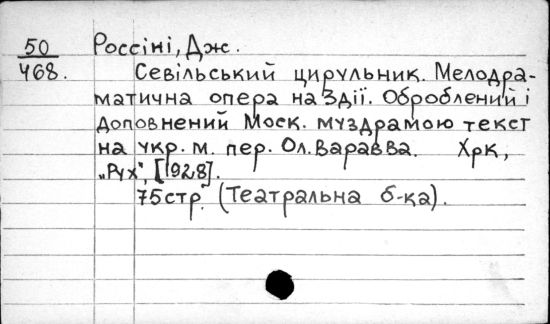 50
468.
Россіні, Дж.
Севільський цирульник. Мелодра-
матична опера на 3 дії. Оброблений і
доповнений Моск. муздрамою текст
на укр. м. пер. Ол. Варавва. Хрк,
„Рух", [1928].
75 стр. (Театральна б-ка).